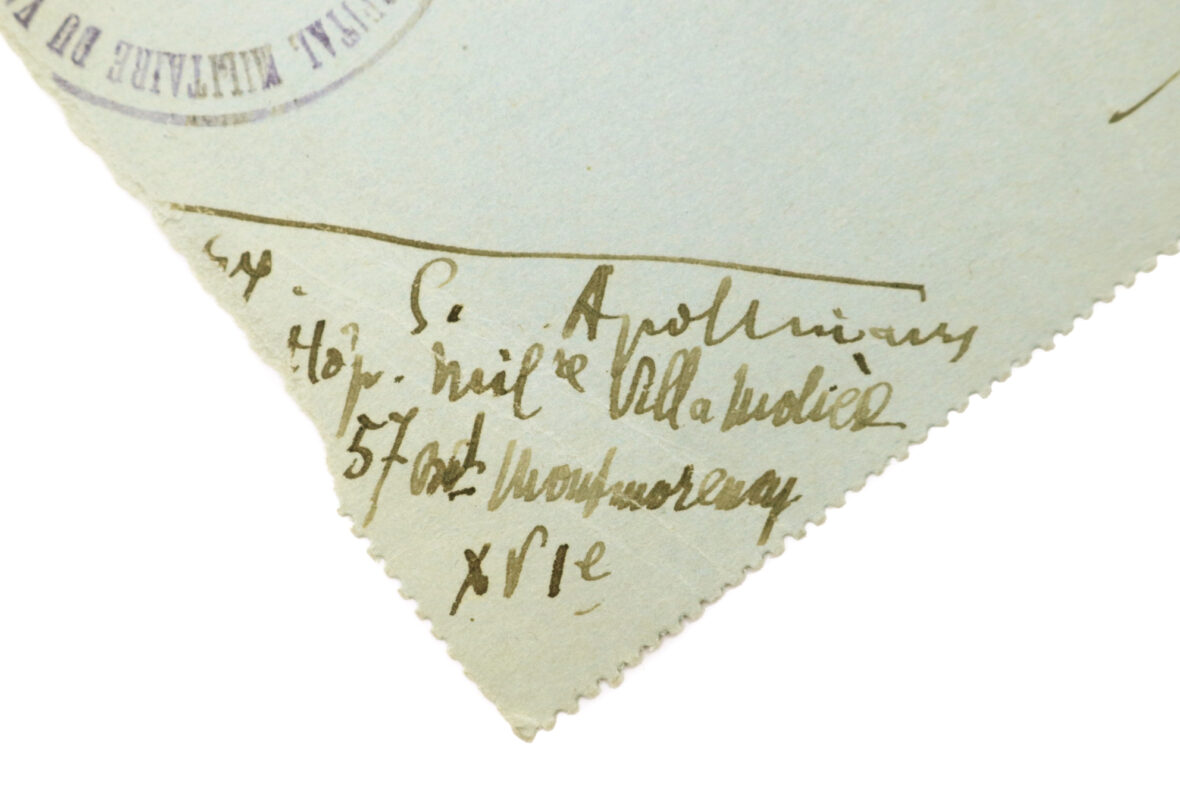 PITAL MILITAIRE DU V
Ex. G. Apollinaire
Hôp. Milre Villa Molière
57 Bd Montmorency
XVIe